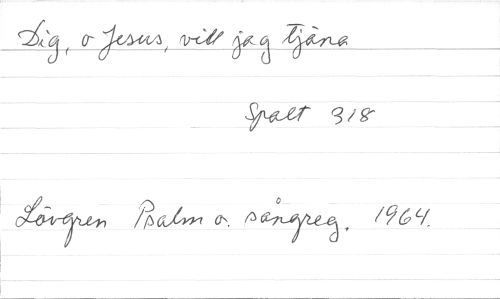 Dig, o Jesus, vill jag tjäna
Spalt 318
Lövgren Psalm o. sångreg. 1964.